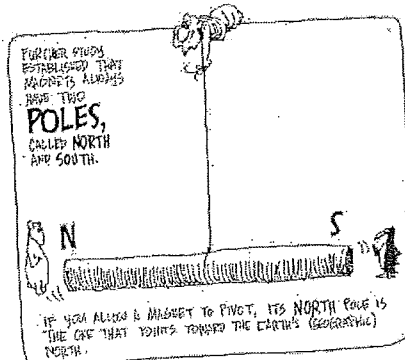 FURTHER STUDY
ESTABLISHED THAT
MAGNETS ALWAYS
HAVE TWO
POLES,
CALLED NORTH
AND SOUTH.
N
S
IF YOU ALLOW A MAGNET TO PIVOT, ITS NORTH POLE IS
THE ONE THAT POINTS TOWARD THE EARTH'S (GEOGRAPHIC)
NORTH.